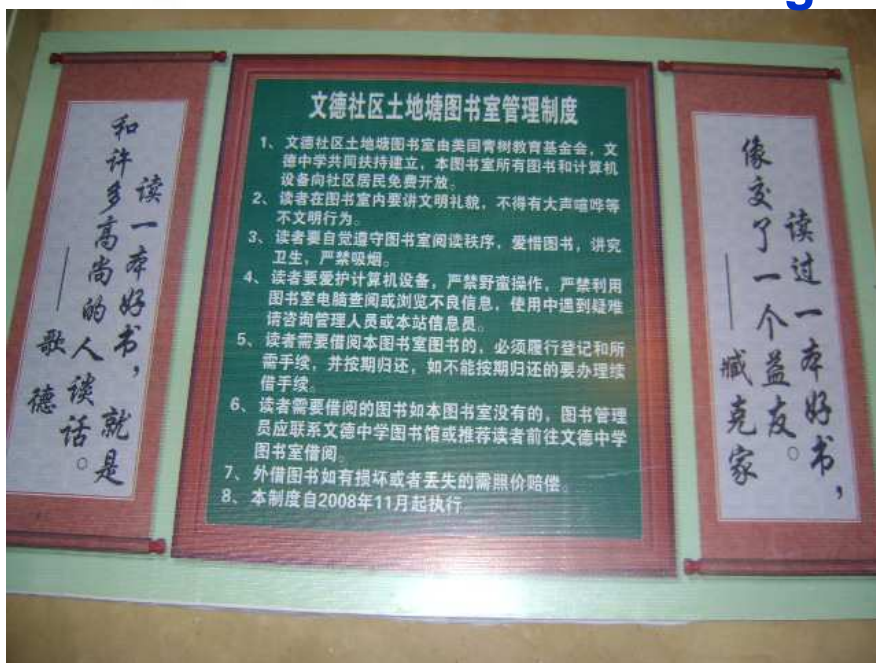 读一本好书,就是
和许多高尚的人谈话。
——歌德
文德社区土地塘图书室管理制度
1、文德社区土地塘图书室由美国青树教育基金会,文
德中学共同扶持建立,本图书室所有图书和计算机
设备向社区居民免费开放。
2、读者在图书室内要讲文明礼貌,不得有大声喧哗等
不文明行为。
3、读者要自觉遵守图书室阅读秩序,爱惜图书,讲究
卫生,严禁吸烟。
4、读者要爱护计算机设备,严禁野蛮操作,严禁利用
图书室电脑查阅或浏览不良信息,使用中遇到疑难
请咨询管理人员或本站信息员。
5、读者需要借阅本图书室图书的,必须履行登记和所
需手续,并按期归还,如不能按期归还的要办理续
借手续。
6、读者需要借阅的图书如本图书室没有的,图书管理
员应联系文德中学图书馆或推荐读者前往文德中学
图书室借阅。
7、外借图书如有损坏或者丢失的需照价赔偿。
8、本制度自2008年11月起执行
读过一本好书,
像交了一个益友。
——臧克家